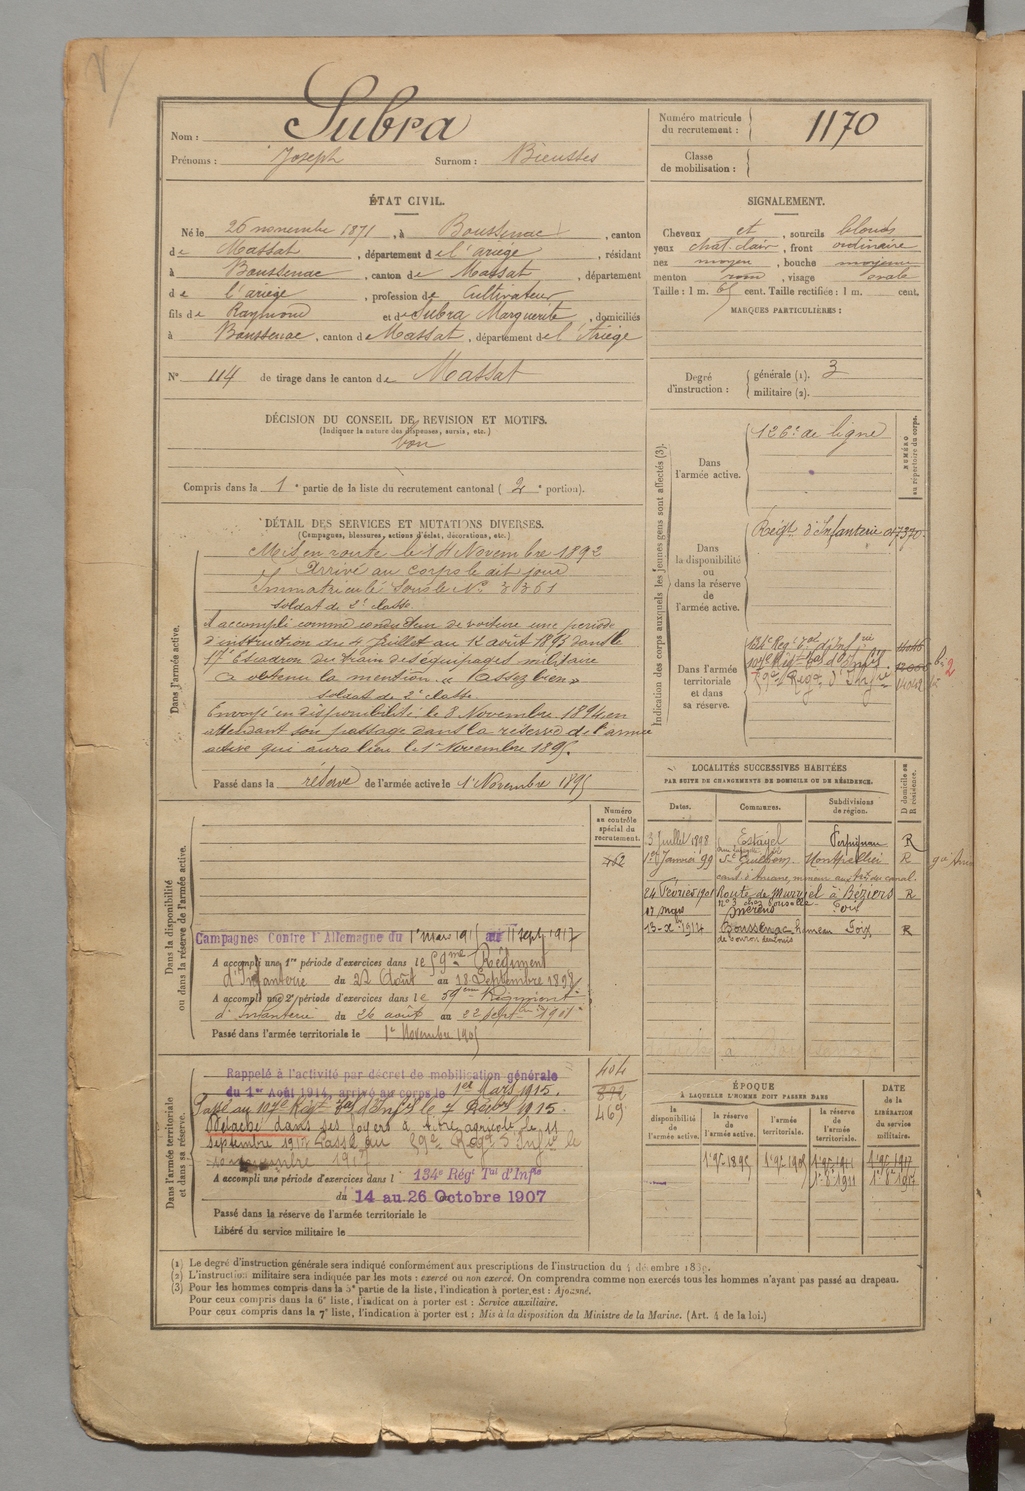 Nom : Subra
Prénoms : Joseph Surnom :
Numéro matricule du recrutement : 1170
Classe de mobilisation :
ÉTAT CIVIL.
Né le 26 novembre 1871, à Boussenac, canton
de Massat, département de l'ariège, résidant
à Boussenac, canton de Massat, département
de l'ariège, profession de Cultivateur
fils de Raymond et de Subra Marguerite, domiciliés
à Boussenac, canton de Massat, département de l'Ariège
N° 114 de tirage dans le canton de Massat
SIGNALEMENT.
Cheveux et, sourcils blonds
yeux chat. clair, front ordinaire
nez moyen, bouche moyenne
menton rond, visage ovale
Taille : 1 m. 65 cent. Taille rectifiée : 1 m. cent.
MARQUES PARTICULIÈRES :
Degré d'instruction : générale (1). 3
militaire (2).
DÉCISION DU CONSEIL DE REVISION ET MOTIFS.
(Indiquer la nature des dispenses, sursis, etc.)
bon
Compris dans la 1e partie de la liste du recrutement cantonal (2e portion).
DÉTAIL DES SERVICES ET MUTATIONS DIVERSES.
(Campagnes, blessures, actions d'éclat, décorations, etc.)
Dans l'armée active.
Mis en route le 14 Novembre 1892
Arrivé au corps le dit jour
Immatriculé sous le N° 3361
soldat de 2e classe
A accompli comme conducteur de voiture une période
d'instruction du 4 Juillet au 12 août 1893 dans le
17e Escadron du train des équipages militaire
a obtenu la mention « Assez bien »
soldat de 2e classe
Envoyé en disponibilité le 8 Novembre 1894 en
attendant son passage dans la réserve de l'armée
active qui aura lieu le 1er Novembre 1895.
Passé dans la réserve de l'armée active le 1er Novembre 1895
Indication des corps auxquels les jeunes gens sont affectés (3).
NUMÉRO au répertoire du corps.
Dans l'armée active.
126e de ligne
Dans la disponibilité ou dans la réserve de l'armée active.
Régt. d'Infanterie
Dans l'armée territoriale et dans sa réserve.
134e Régt
107e Régt
59e Régt d'Infie
LOCALITÉS SUCCESSIVES HABITÉES
PAR SUITE DE CHANGEMENTS DE DOMICILE OU DE RÉSIDENCE.
D domicile ou R résidence.
Dates. Communes. Subdivisions de région.
3 Juillet 1898 Estagel Perpignan R
1er Janvier 99 St Guilhem Montpellier R
24 Février 1901 Route de à Béziers R
17 mars Mérens Foix
1914 Boussenac hameau Foix R
Numéro au contrôle spécial du recrutement.
Dans la disponibilité ou dans la réserve de l'armée active.
Campagnes Contre l'Allemagne du 1er mars 1915 au 11 sept 1917
A accompli une 1re période d'exercices dans le 59me Régiment
d'Infanterie du 22 Août au 18 Septembre 1898
A accompli une 2e période d'exercices dans le 59eme Régiment
d'Infanterie du 26 août au 22 Septbre 1901
Passé dans l'armée territoriale le 1er Novembre 1905
Dans l'armée territoriale et dans sa réserve.
Rappelé à l'activité par décret de mobilisation générale
du 1er Août 1914, arrivé au corps le 1er Mars 1915.
Passé au 107e Régt d'Infie le 7 1915.
Détaché dans ses foyers à titre agricole le 11
Septembre 1917. Passé au 59e Régt d'Infie le
novembre 1917
A accompli une période d'exercices dans le 134e Régt Tal d'Infie
du 14 au 26 Octobre 1907
Passé dans la réserve de l'armée territoriale le
Libéré du service militaire le
404
469
ÉPOQUE
À LAQUELLE L'HOMME DOIT PASSER DANS
la disponibilité de l'armée active.
la réserve de l'armée active.
l'armée territoriale.
la réserve de l'armée territoriale.
DATE de la LIBÉRATION du service militaire.
1er 9bre 1895 1er 9bre 1905 1er 9bre 1911 1er 9bre 1917
(1) Le degré d'instruction générale sera indiqué conformément aux prescriptions de l'instruction du 4 décembre 1889.
(2) L'instruction militaire sera indiquée par les mots : exercé ou non exercé. On comprendra comme non exercés tous les hommes n'ayant pas passé au drapeau.
(3) Pour les hommes compris dans la 5e partie de la liste, l'indication à porter est : Ajourné.
Pour ceux compris dans la 6e liste, l'indication à porter est : Service auxiliaire.
Pour ceux compris dans la 7e liste, l'indication à porter est : Mis à la disposition du Ministre de la Marine. (Art. 4 de la loi.)